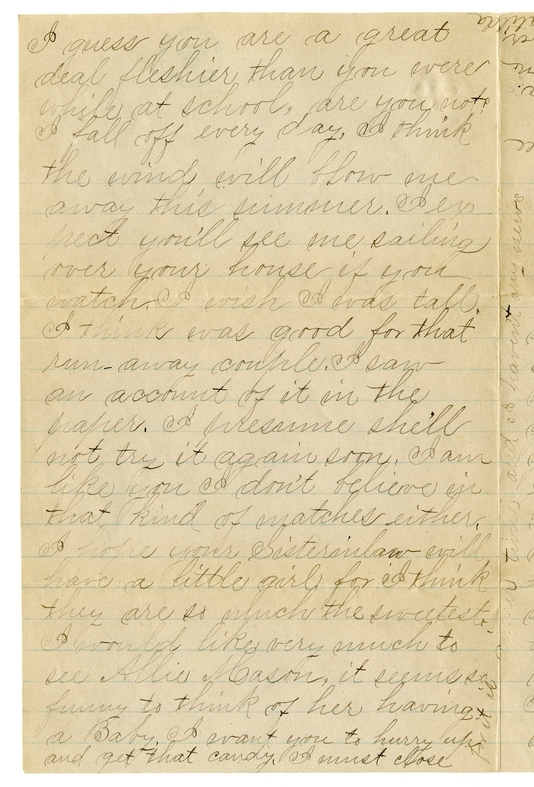 I guess you are a great
deal fleshier than you were
while at school, are you not?
I fall off every day. I think
the wind will blow me
away this summer. I ex
pect you'll see me sailing
over your house if you
watch. I wish I was tall.
I think was good for that
run-away couple. I saw
an account of it in the
paper. I presume she'll
not try it again soon. I am
like you I don't believe in
that kind of matches either.
I hope your Sisterinlaw will
have a little girl for I think
they are so much the sweetest.
I would like very much to
see Allie Mason, it seems so
funny to think of her having
a Baby. I want you to hurry up
and get that candy. I must close